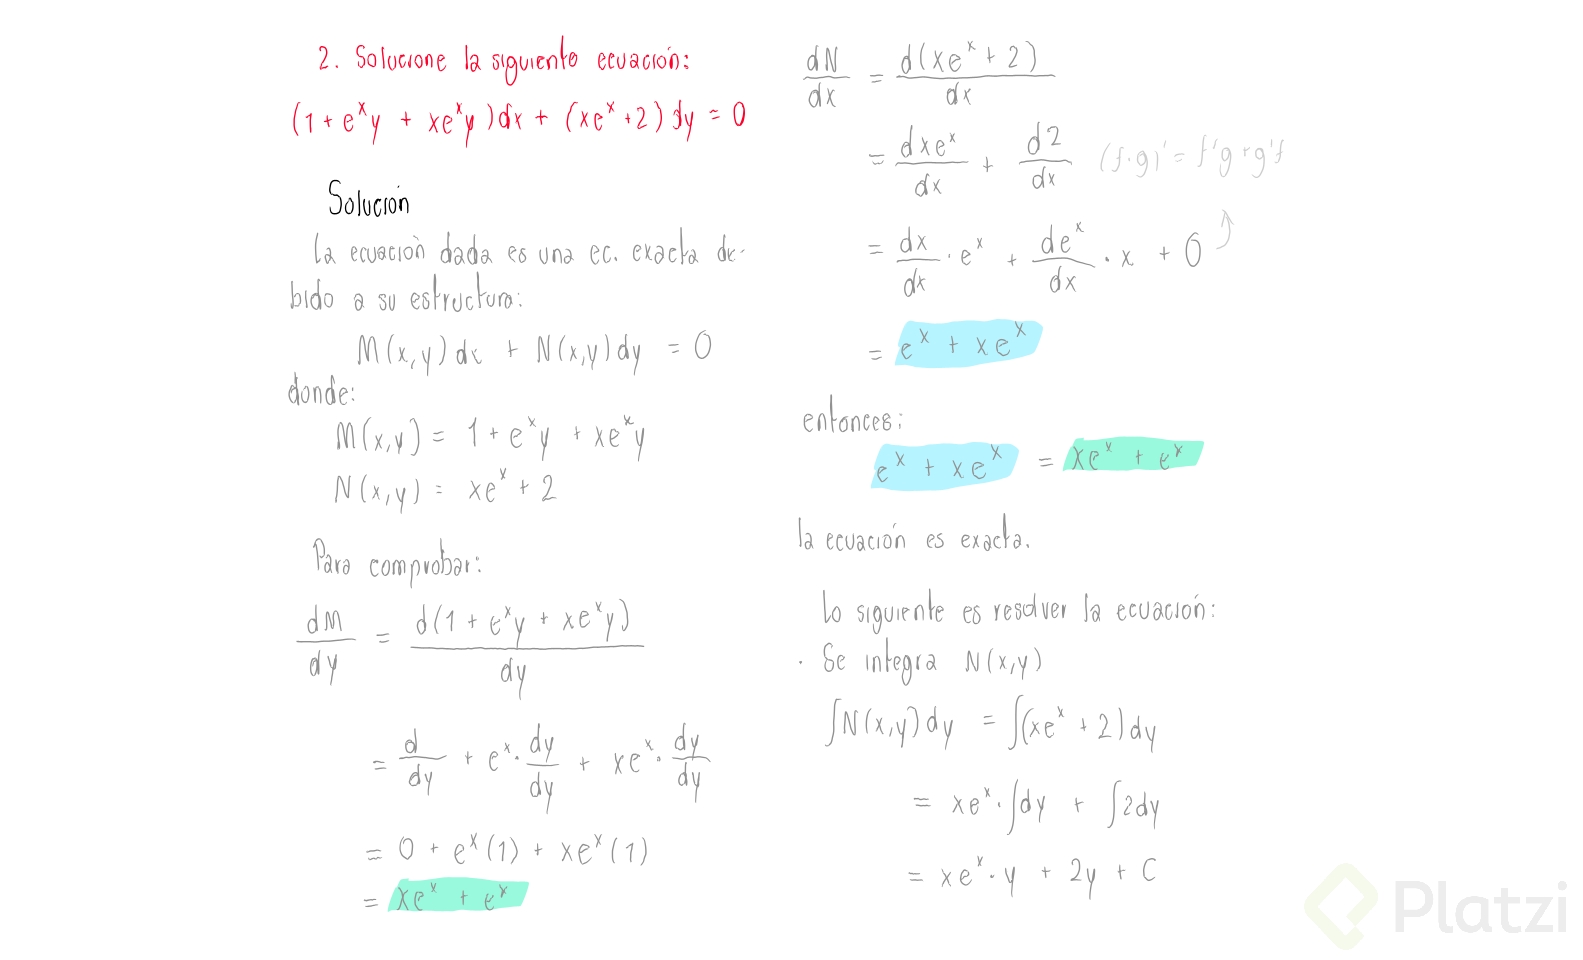 2. Solucione la siguiente ecuación:
(1 + e^x y + xe^x y)dx + (xe^x + 2)dy = 0
Solución
La ecuación dada es una ec. exacta de-
bido a su estructura:
M(x,y)dx + N(x,y)dy = 0
donde:
M(x,y) = 1 + e^x y + xe^x y
N(x,y) = xe^x + 2
Para comprobar:
dM/dy = d(1 + e^x y + xe^x y)/dy
= d/dy + e^x · dy/dy + xe^x · dy/dy
= 0 + e^x(1) + xe^x(1)
= xe^x + e^x
dN/dx = d(xe^x + 2)/dx
= dxe^x/dx + d2/dx (f·g)' = f'g + g'f
= dx/dx · e^x + de^x/dx · x + 0
= e^x + xe^x
entonces:
e^x + xe^x = xe^x + e^x
la ecuación es exacta.
Lo siguiente es resolver la ecuación:
· Se integra N(x,y)
∫N(x,y)dy = ∫(xe^x + 2)dy
= xe^x · ∫dy + ∫2dy
= xe^x · y + 2y + C
Platzi